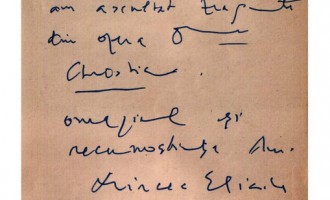 am ascultat fragmente
din opera
Christian.
omagiul și
recunoștința din.
Mircea Eliade